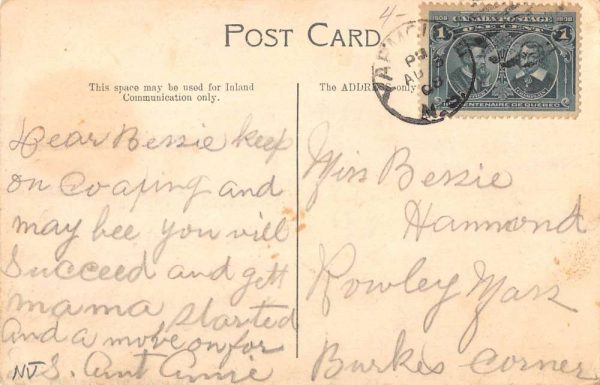 4-
POST CARD
This space may be used for Inland
Communication only.
The ADDRESS only
1608 1908
CANADA POSTAGE
1 ONE CENT 1
CARTIER CHAMPLAIN
IIIe CENTENAIRE DE QUEBEC
YARMO
PM
AU
08
N.S.
Dear Bessie keep
on Coaping and
may bee you will
Succeed and gett
mama started
and a move on for
N.S. Aunt Annie
NV
Miss Bessie
Hammond
Rowley Mass
Burkes Corner